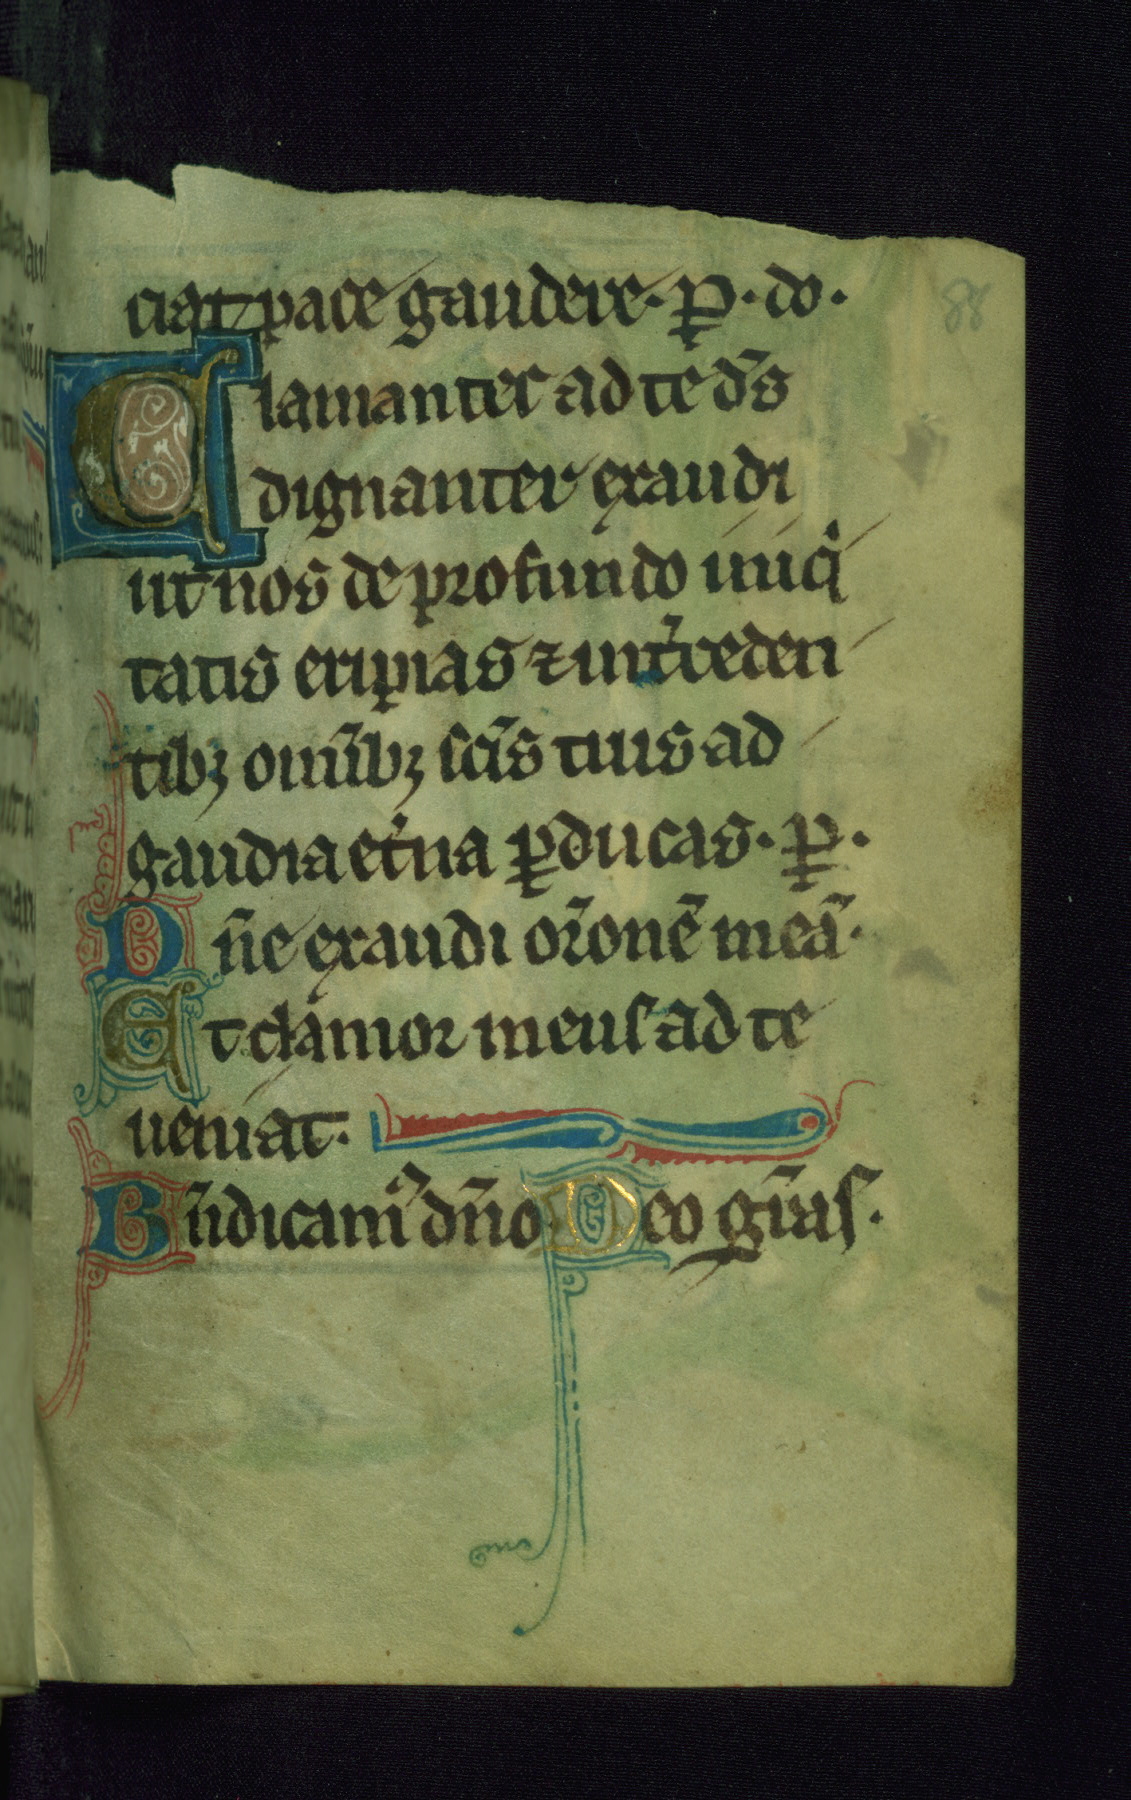 ciat pace gaudere. ꝑ. do.
Clamantes ad te dn̄s
dignanter exaudi
ut nos de profundo iniqⁱ
tatis eripias ⁊ int̾ceden
tibꝫ om̄ibꝫ sc̄is tuis ad
gaudia et̾na ꝑducas. ꝑ.
Dn̄e exaudi or̄onē meā.
Et clamor meus ad te
ueniat.
Bn̄dicam᷒ dn̄o Deo gr̄as.
88